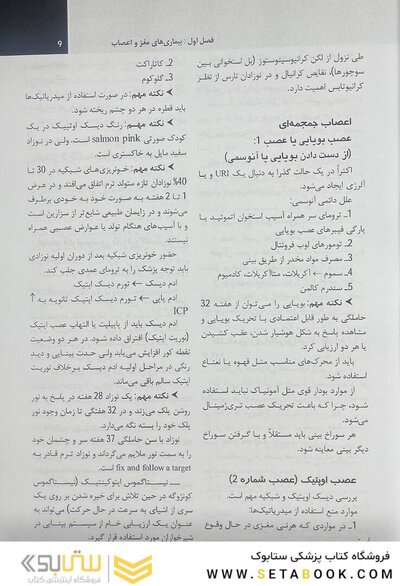 فصل اول : بیماری‌های مغز و اعصاب
9
طی نزول از لگن کرانیوسینوستوز (پل استخوانی بین
سوچورها)، نقایص کرانیال و در نوزادان نارس از نظر
کرانیوتابس اهمیت دارد.
اعصاب جمجمه‌ای
عصب بویایی یا عصب 1:
(از دست دادن بویایی یا آنوسمی)
اکثراً در یک حالت گذرا به دنبال یک URI و یا
آلرژی ایجاد می‌شود.
علل دائمی آنوسمی:
1ـ ترومای سر همراه آسیب استخوان اتموئید یا
پارگی فیبرهای عصب بویایی
2ـ تومورهای لوب فرونتال
3ـ مصرف مواد مخدر از طریق بینی
4ـ سموم ← آکریلات، متاآکریلات، کادمیوم
5ـ سندرم کالمن
نکته مهم: بویایی را می‌توان از هفته 32
حاملگی به طور قابل اعتمادی با تحریک بویایی و
مشاهده پاسخ به شکل هوشیار شدن، عقب کشیدن
یا هر دو ارزیابی کرد.
باید از محرک‌های مناسب مثل قهوه یا نعناع
استفاده شود.
از موارد بودار قوی مثل آمونیاک نباید استفاده
شود، چرا که باعث تحریک عصب تری‌ژمینال
می‌شود.
هر سوراخ بینی باید مستقلاً و با گرفتن سوراخ
بینی دیگر معاینه شود.
عصب اوپتیک (عصب شماره 2)
بررسی دیسک اوپتیک و شبکیه مهم است.
موارد منع استفاده از میدریاتیک‌ها:
1ـ در مواردی که هرنی مغزی در حال وقوع
2ـ کاتاراکت
3ـ گلوکوم
نکته مهم: در صورت استفاده از میدریاتیک‌ها
باید قطره در هر دو چشم ریخته شود.
نکته مهم: رنگ دیسک اوتیک در یک
کودک صورتی salmon pink است. ولی در نوزاد
سفید مایل به خاکستری است.
نکته مهم: خونریزی‌های شبکیه در 30 تا
40% نوزادان تازه متولد ترم اتفاق می‌افتد و در عرض
1 تا 2 هفته به صورت خود به خودی برطرف
می‌شوند و در زایمان طبیعی شایع‌تر از سزارین است
و با آسیب‌های هنگام تولد یا عوارض عصبی همراه
نیستند.
حضور خونریزی شبکیه بعد از دوران اولیه نوزادی
باید توجه پزشک را به ترومای عمدی جلب کند.
ادم دیسک ← تورم دیسک اپتیک
ادم پاپی ← تورم دیسک اپتیک ثانویه به ↑
ICP
ادم دیسک باید از پاپیلیت یا التهاب عصب اپتیک
(نوریت اپتیک) افتراق داده شود. در هر دو وضعیت
نقطه کور افزایش می‌یابد ولی حدت بینایی و دید
رنگی در مراحل اولیه ادم دیسک برخلاف نوریت
اپتیک سالم باقی می‌ماند.
نکته مهم: یک نوزاد 28 هفته در پاسخ به نور
روشن پلک می‌زند و در 32 هفتگی تا زمان وجود نور
پلک خود را بسته نگه می‌دارد.
نوزاد با سن حاملگی 37 هفته سر و چشمان خود
را به سمت نور ملایم می‌گرداند و نوزاد ترم قادر به
fix and follow a target است
نیستاگموس اوپتیکینتیک (نیستاگموس
کونژوگه در حین تلاش برای خیره شدن بر روی یک
سری از اشیای به سرعت در حال حرکت) می‌تواند به
عنوان یک ارزیابی خام از سیستم بینایی در
شیرخواران مورد استفاده قرار گیرد.
فروشگاه کتاب پزشکی ستابوک
WWW.SETABOOK.COM
ستابوک
فروشگاه اینترنتی کتاب